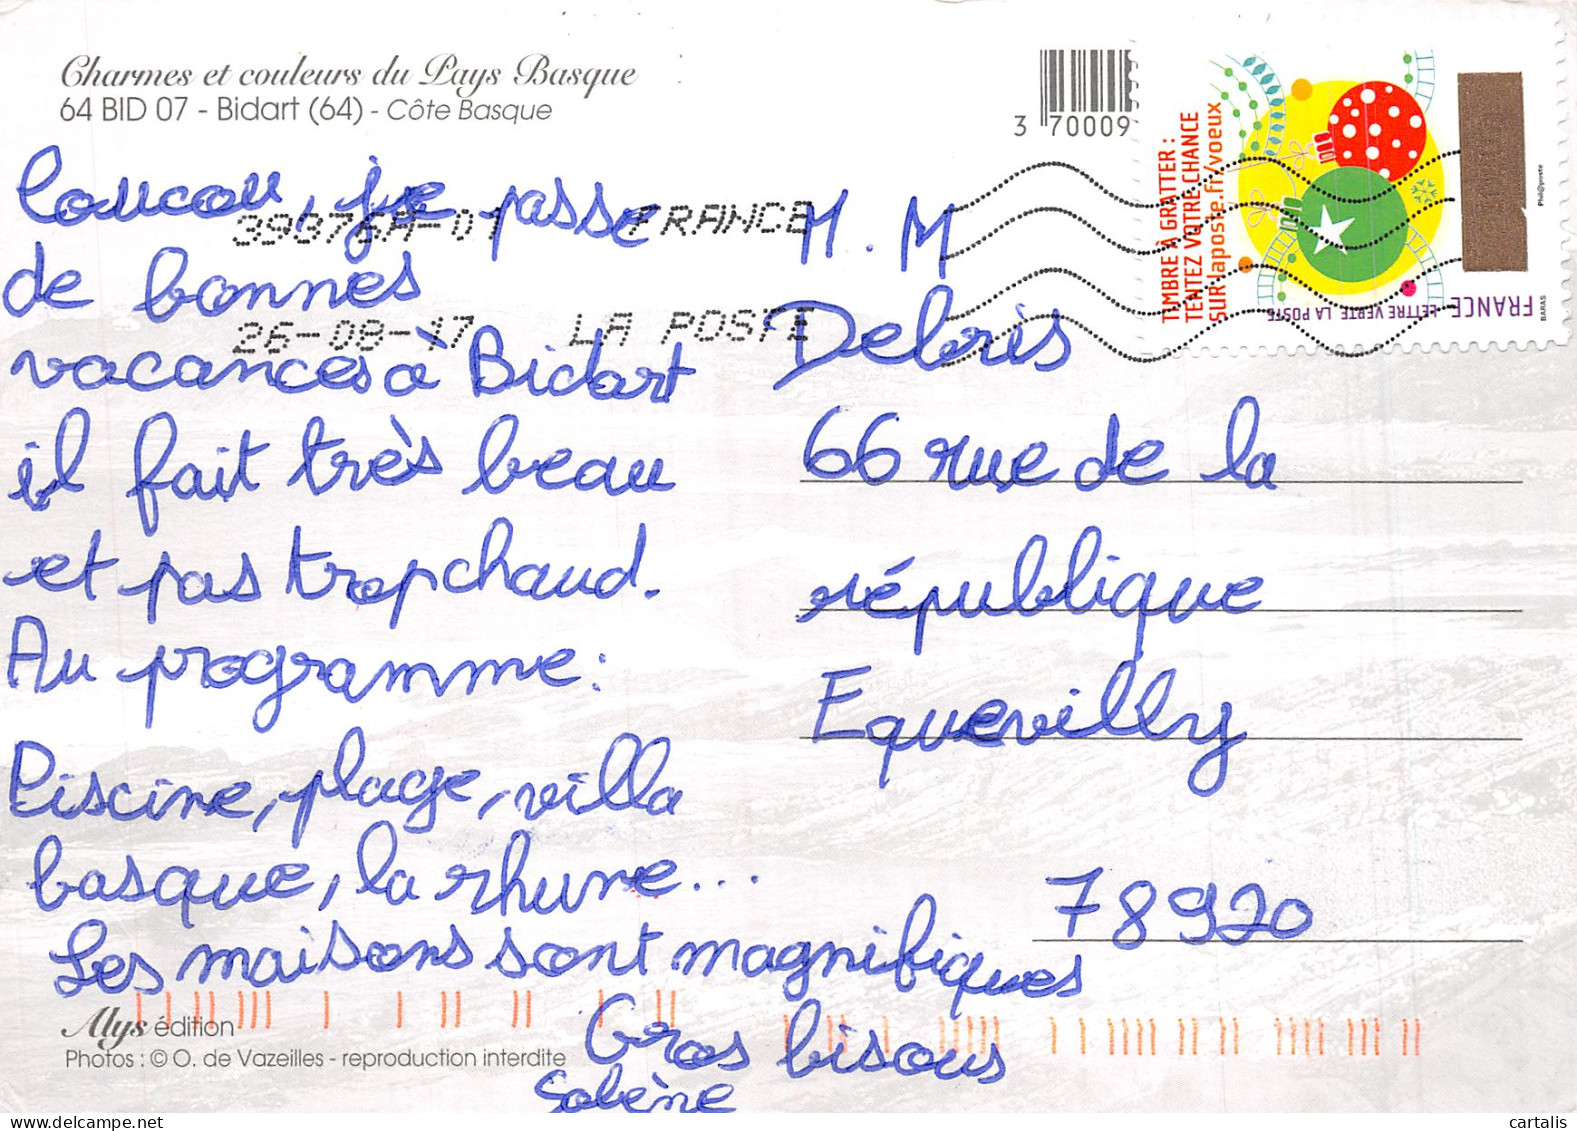 Charmes et couleurs du Pays Basque
64 BID 07 - Bidart (64) - Côte Basque
3 70009
TIMBRE À GRATTER :
TENTEZ VOTRE CHANCE
SUR laposte.fr/voeux
FRANCE
LETTRE VERTE LA POSTE
Phil@poste
BARAS
39376A-01 FRANCE
26-08-17 LA POSTE
Coucou, je passe
de bonnes
vacances à Bidart
il fait très beau
et pas trop chaud.
Au programme :
Piscine, plage, villa
basque, la rhune...
Les maisons sont magnifiques
Gros bisous
M. M
Debris
66 rue de la
république
Equevilly
78920
Alys édition
Photos : © O. de Vazeilles - reproduction interdite
cartalis